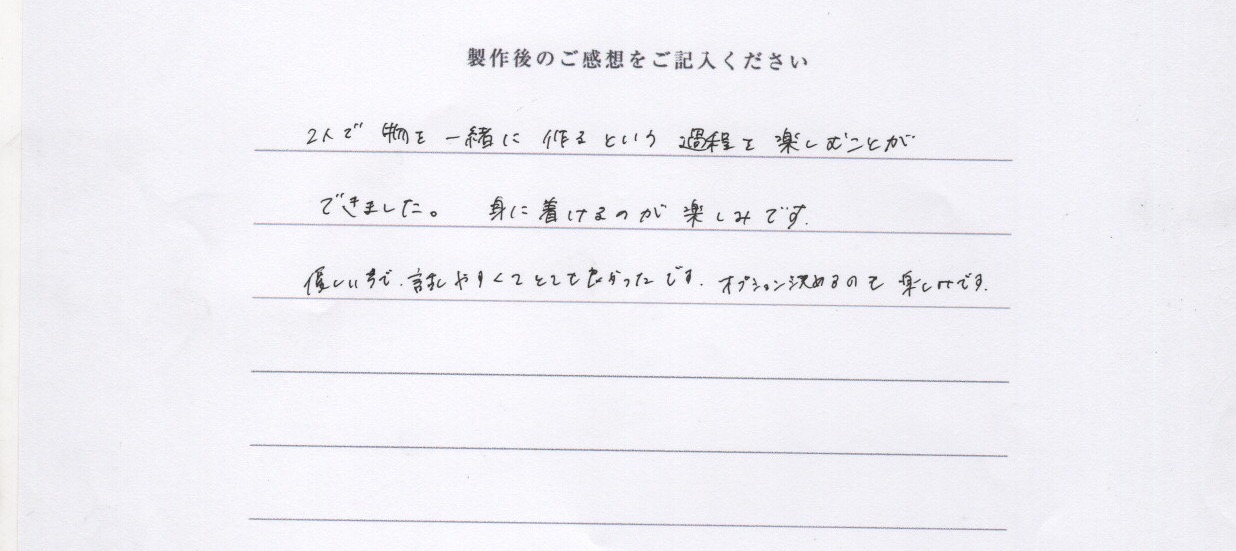 製作後のご感想をご記入ください
2人で 物を 一緒に 作るという 過程を 楽しむことが
できました。 身に着けるのが 楽しみです.
優しい方で、話しやすくてとても良かったです. オプション決めるのも 楽しみです.